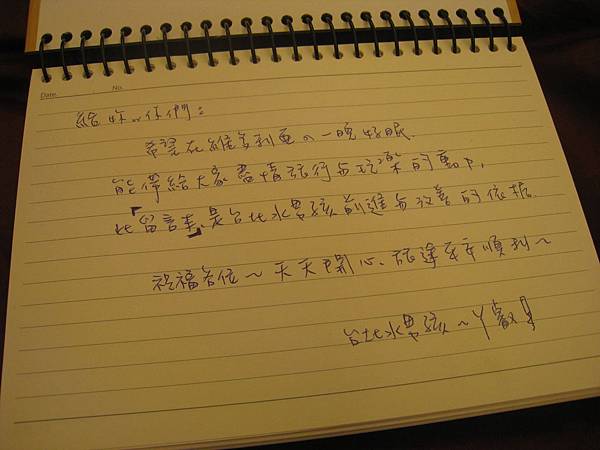 Date
No.
給妳、你們：
希望在維多利亞の一晚好眠
能帶給大家盡情旅行與玩樂的動力，
此「留言本」是台北水男孩前進與改善的依據
祝福各位～天天開心、旅途平平順利～
台北水男孩～ㄚ